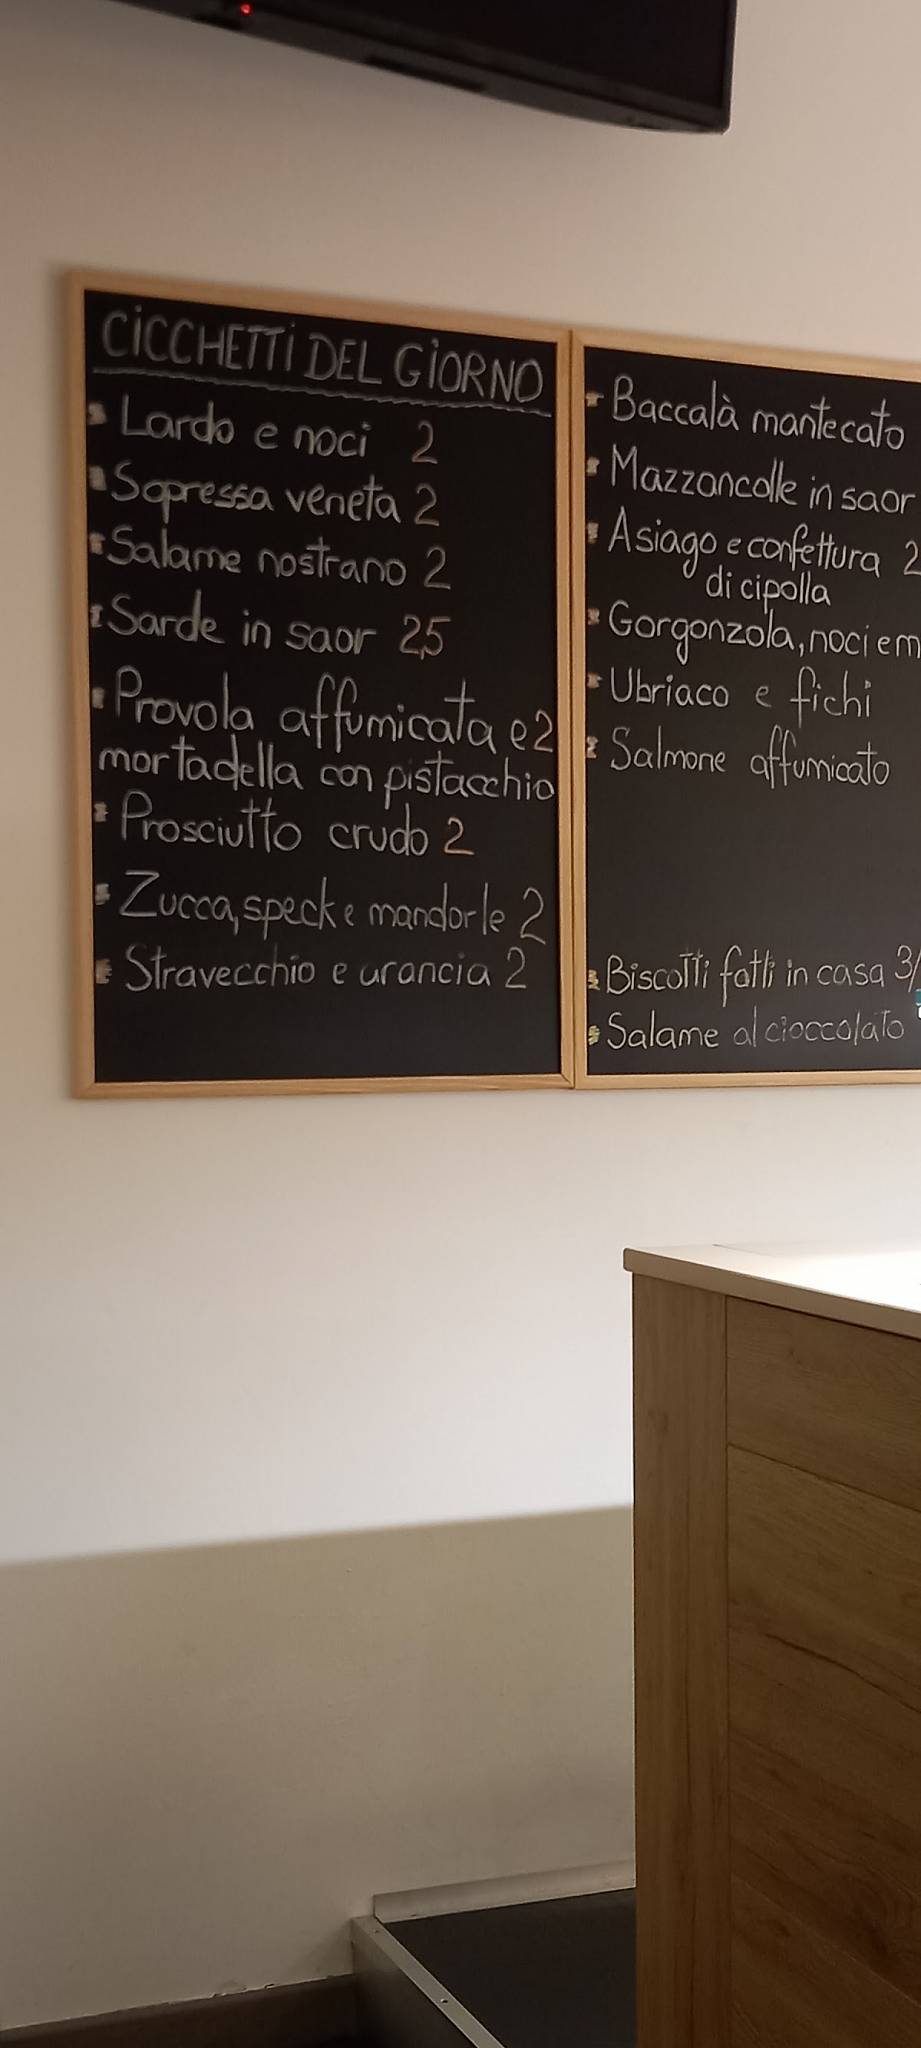 CICCHETTI DEL GIORNO
Lardo e noci 2
Sopressa veneta 2
Salame nostrano 2
Sarde in saor 2,5
Provola affumicata e 2
mortadella con pistacchio
Prosciutto crudo 2
Zucca, speck e mandorle 2
Stravecchio e arancia 2
Baccalà mantecato
Mazzancolle in saor
Asiago e confettura 2
di cipolla
Gorgonzola, noci e m
Ubriaco e fichi
Salmone affumicato
Biscotti fatti in casa 3/
Salame al cioccolato